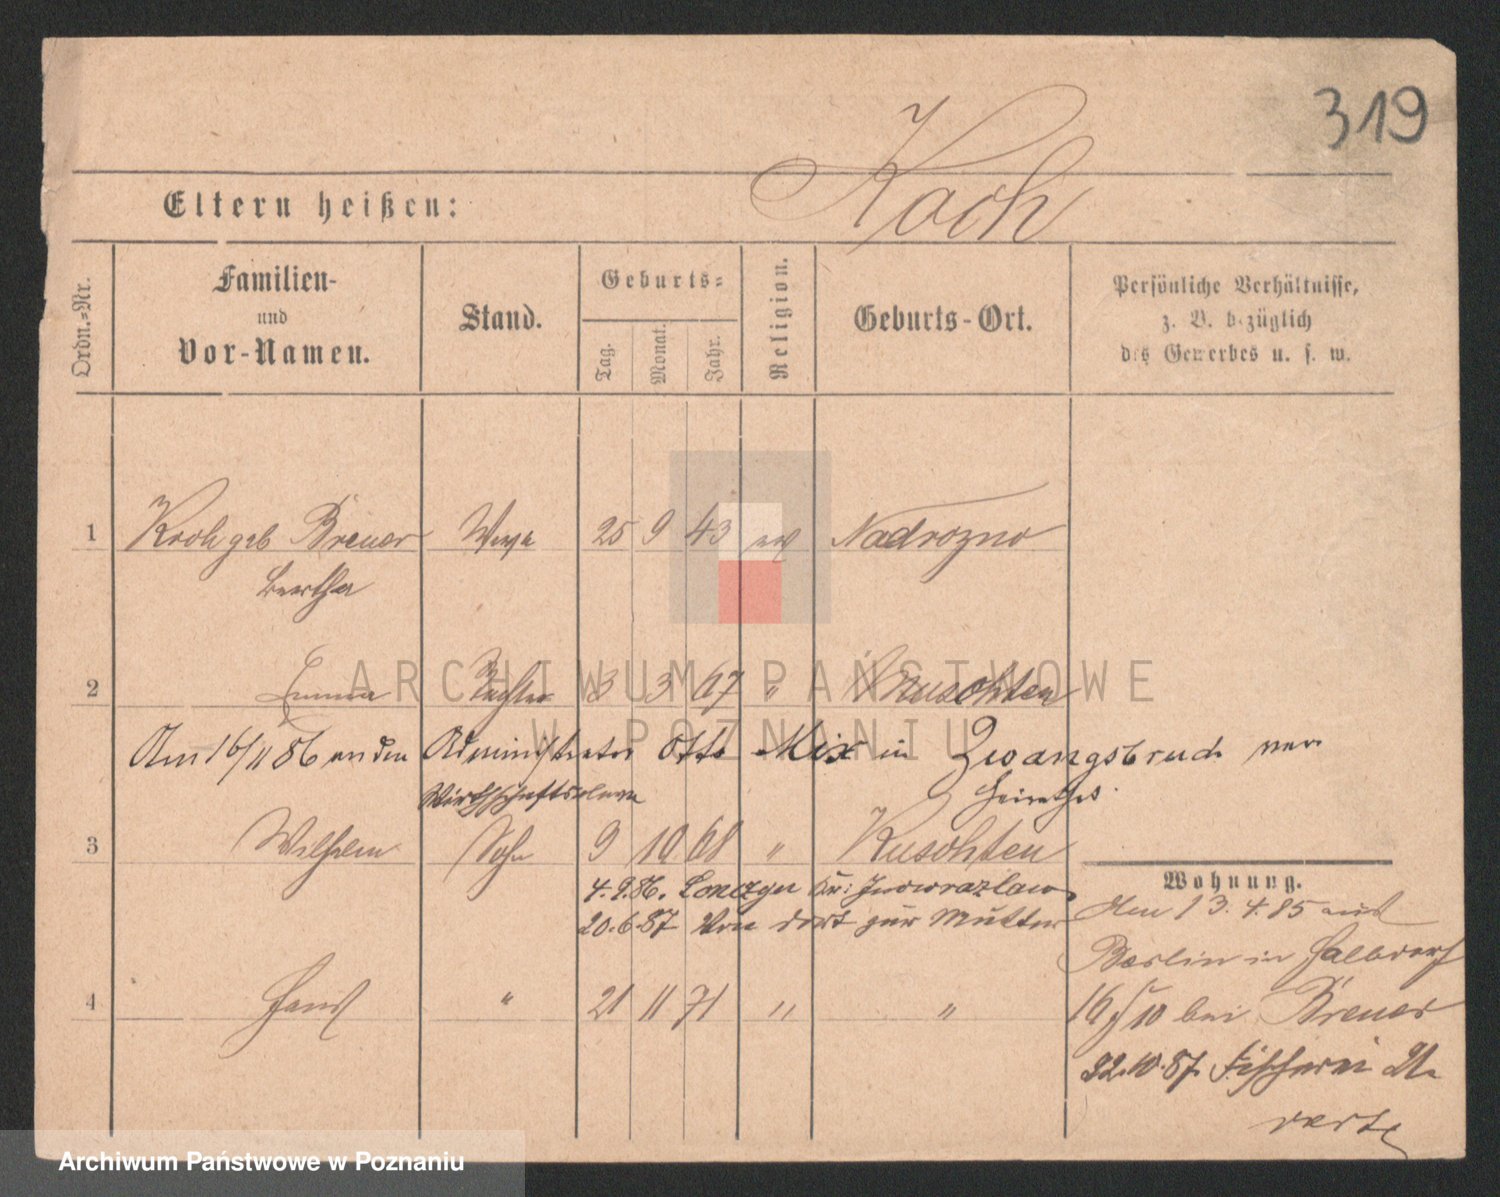 319
Koch
Eltern heißen:
Ordn.-Nr.
Familien-
und
Vor-Namen.
Stand.
Geburts-
Tag.
Monat.
Jahr.
Religion.
Geburts-Ort.
Persönliche Verhältnisse,
z. B. bezüglich
des Gewerbes u. s. w.
1 Koch geb Breuer Wwe 25 9 43 ev Nadrozno
Bertha
2 Emma Tochter 3 3 67 " Kruschten
Am 16/11 86 an den Administrator Otto Mix in Zwangsbruch ver
heirathet.
3 Wilhelm Sohn 9 10 68 " Kuschten
4.9.86. Kr: Inowrazlaw
20.6.87 von dort zur Mutter
4 Hans " 21 11 71 " "
Wohnung.
Am 13.4.85 aus
Berlin in Halbdorf
16 I/10 bei Breuer
22.10.87. Fischerei 21.
verte
ARCHIWUM PAŃSTWOWE
W POZNANIU
Archiwum Państwowe w Poznaniu